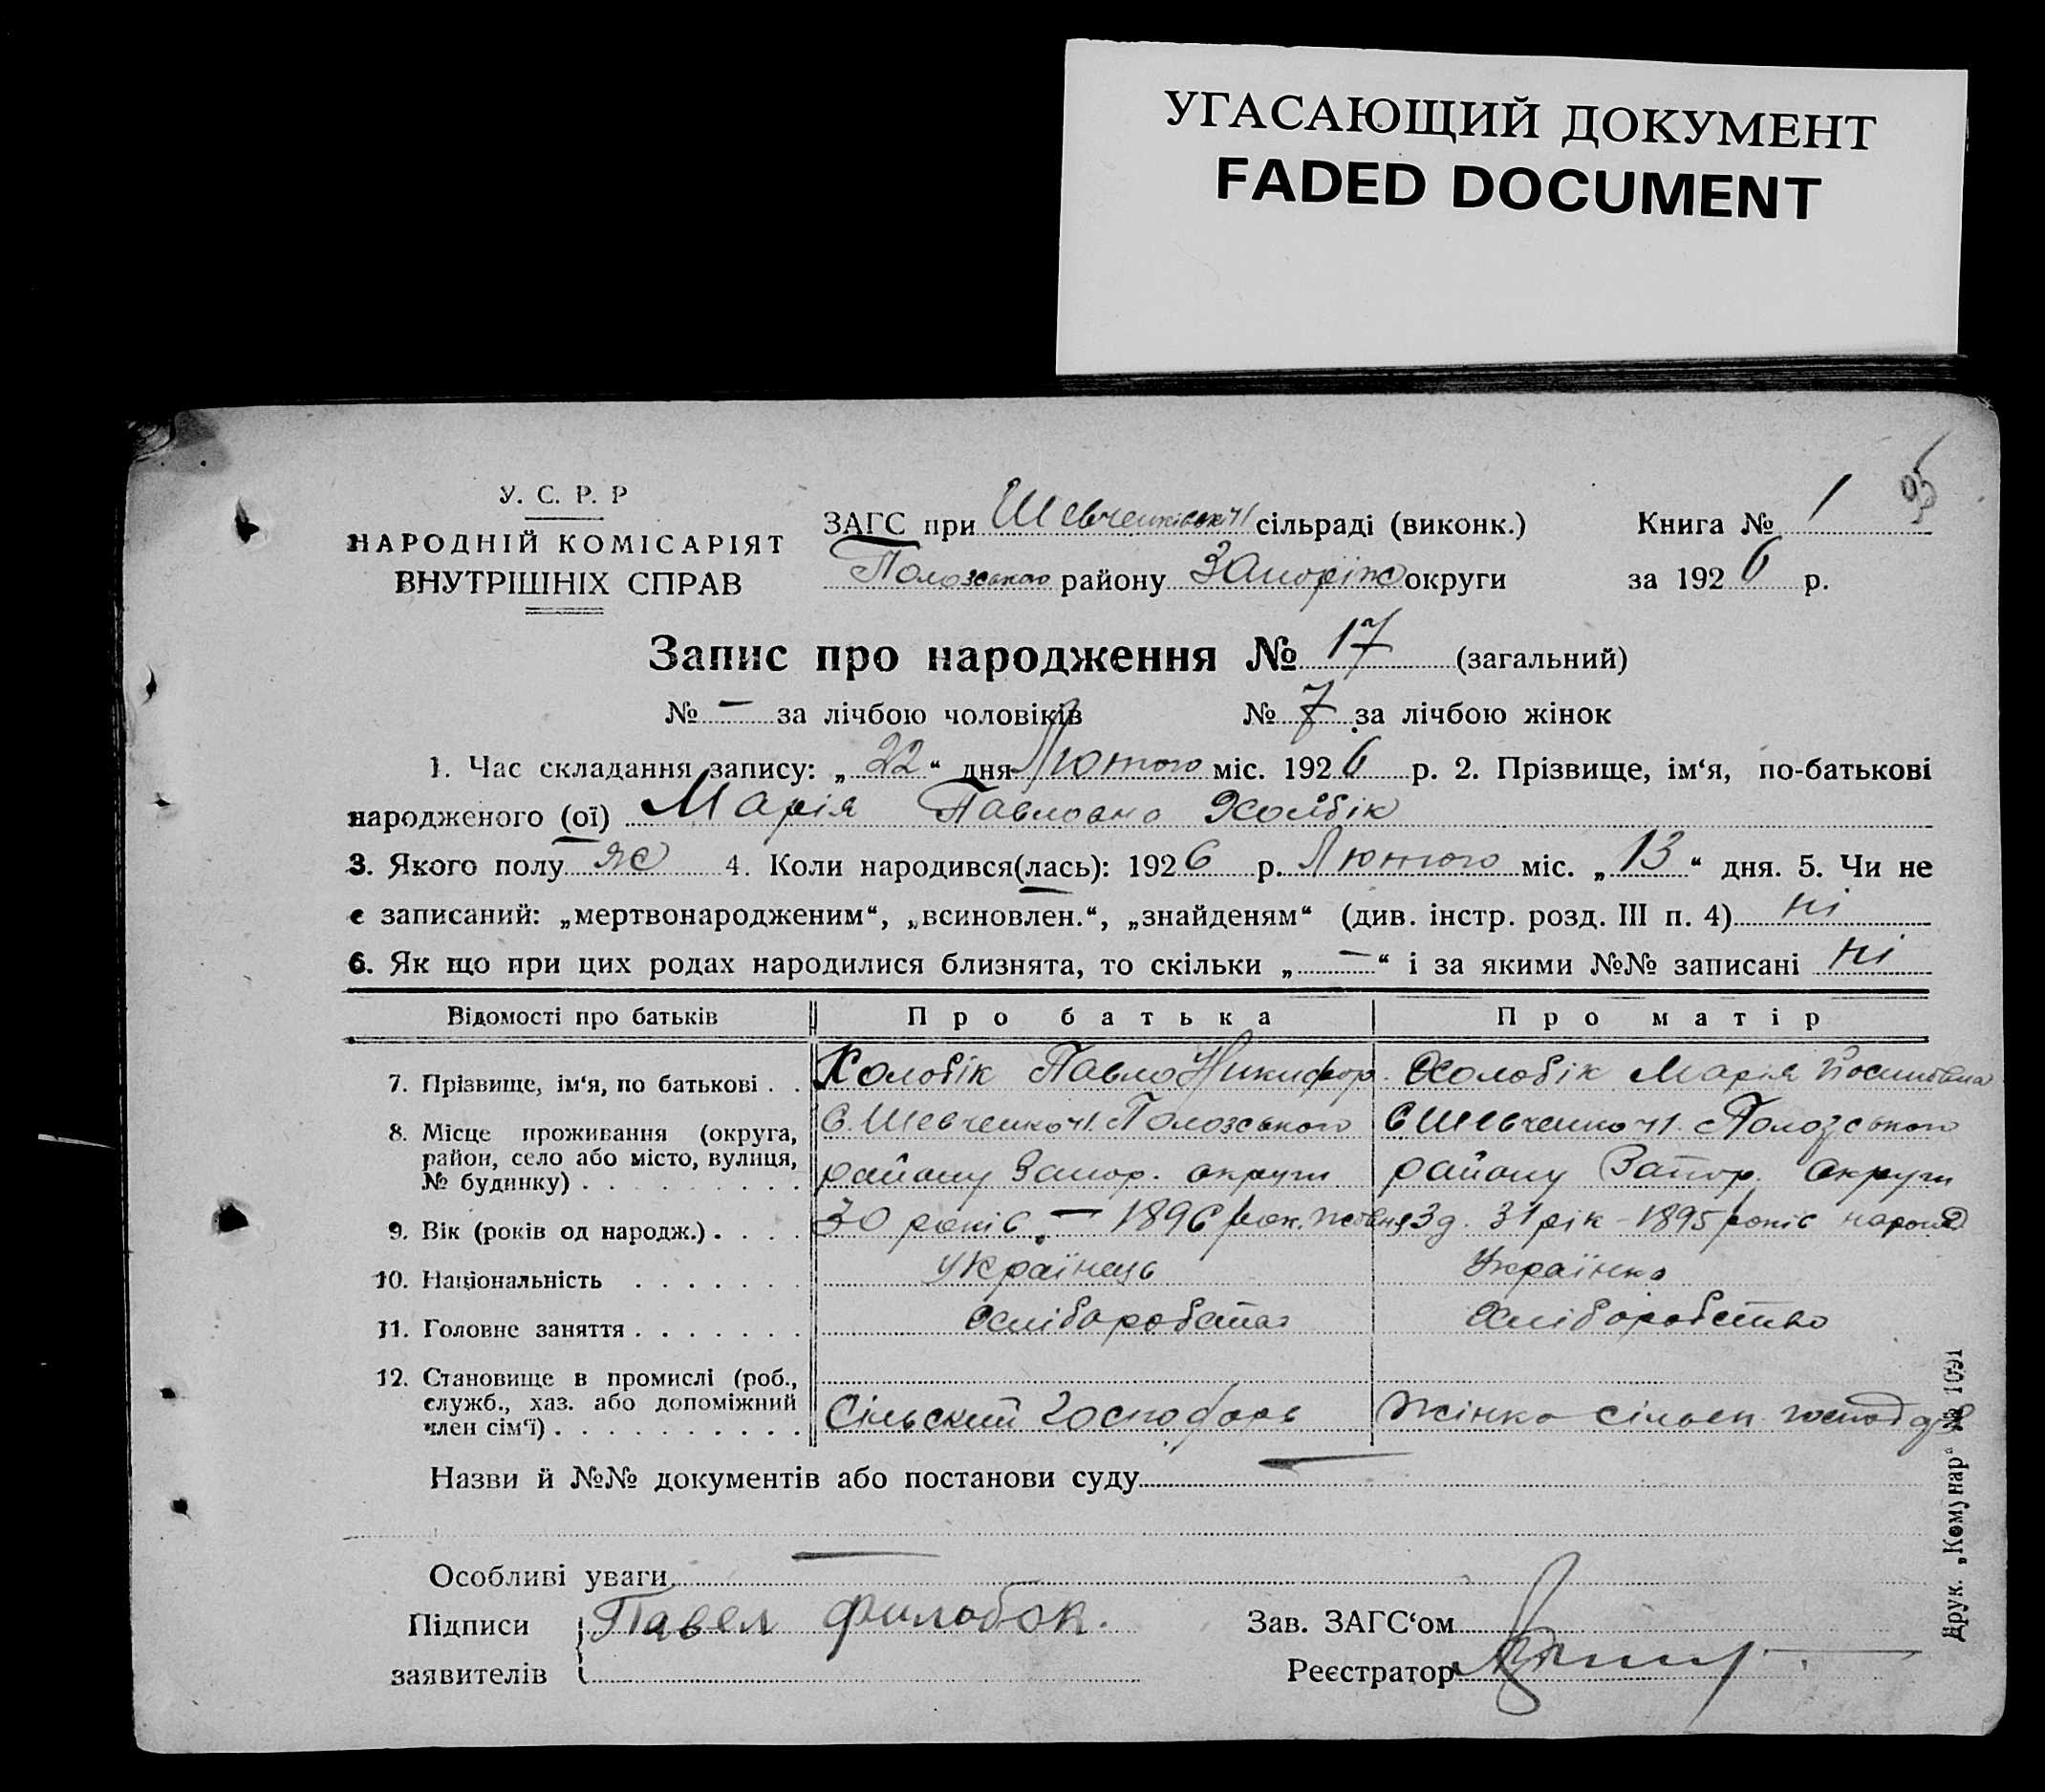 УГАСАЮЩИЙ ДОКУМЕНТ
FADED DOCUMENT
У. С. Р. Р
НАРОДНІЙ КОМІСАРІЯТ
ВНУТРІШНІХ СПРАВ
ЗАГС при Шевченківськ №1 сільраді (виконк.)
Пологського району Запоріж округи
Книга № 1
за 1926 р.
Запис про народження № 17 (загальний)
№ — за лічбою чоловіків № 7 за лічбою жінок
1. Час складання запису: „22“ дня Лютого міс. 1926 р. 2. Прізвище, ім‘я, по-батькові
народженого (ої) Марія Павловна
3. Якого полу ж 4. Коли народився(лась): 1926 р. Лютого міс. „13“ дня. 5. Чи не
є записаний: „мертвонародженим“, „всиновлен.“, „знайденям“ (див. інстр. розд. III п. 4) ні
6. Як що при цих родах народилися близнята, то скільки „—“ і за якими №№ записані ні
Відомості про батьків Про батька Про матір
7. Прізвище, ім‘я, по батькові . . Холобік Павло Никифор. Холобік Марія
8. Місце проживання (округа, район, село або місто, вулиця, № будинку) . . . . . . . . .
С. Шевченко №1. Пологського С Шевченко №1. Пологського
району Запор. округи району Запор. Округи
9. Вік (років од народж.) . . . . 30 років — 1896 рок. 31 рік - 1895 років народ
10. Національність . . . . . . Українець Українка
11. Головне заняття . . . . . . . Хліборобство Хліборобство
12. Становище в промислі (роб., служб., хаз. або допоміжний член сім‘ї) . . . . . . . . . .
Сільський господарь Жінка сільск. господар
Назви й №№ документів або постанови суду —
Особливі уваги —
Підписи заявителів Павел
Зав. ЗАГС‘ом
Реєстратор
Друк. „Комунар“ № 1091